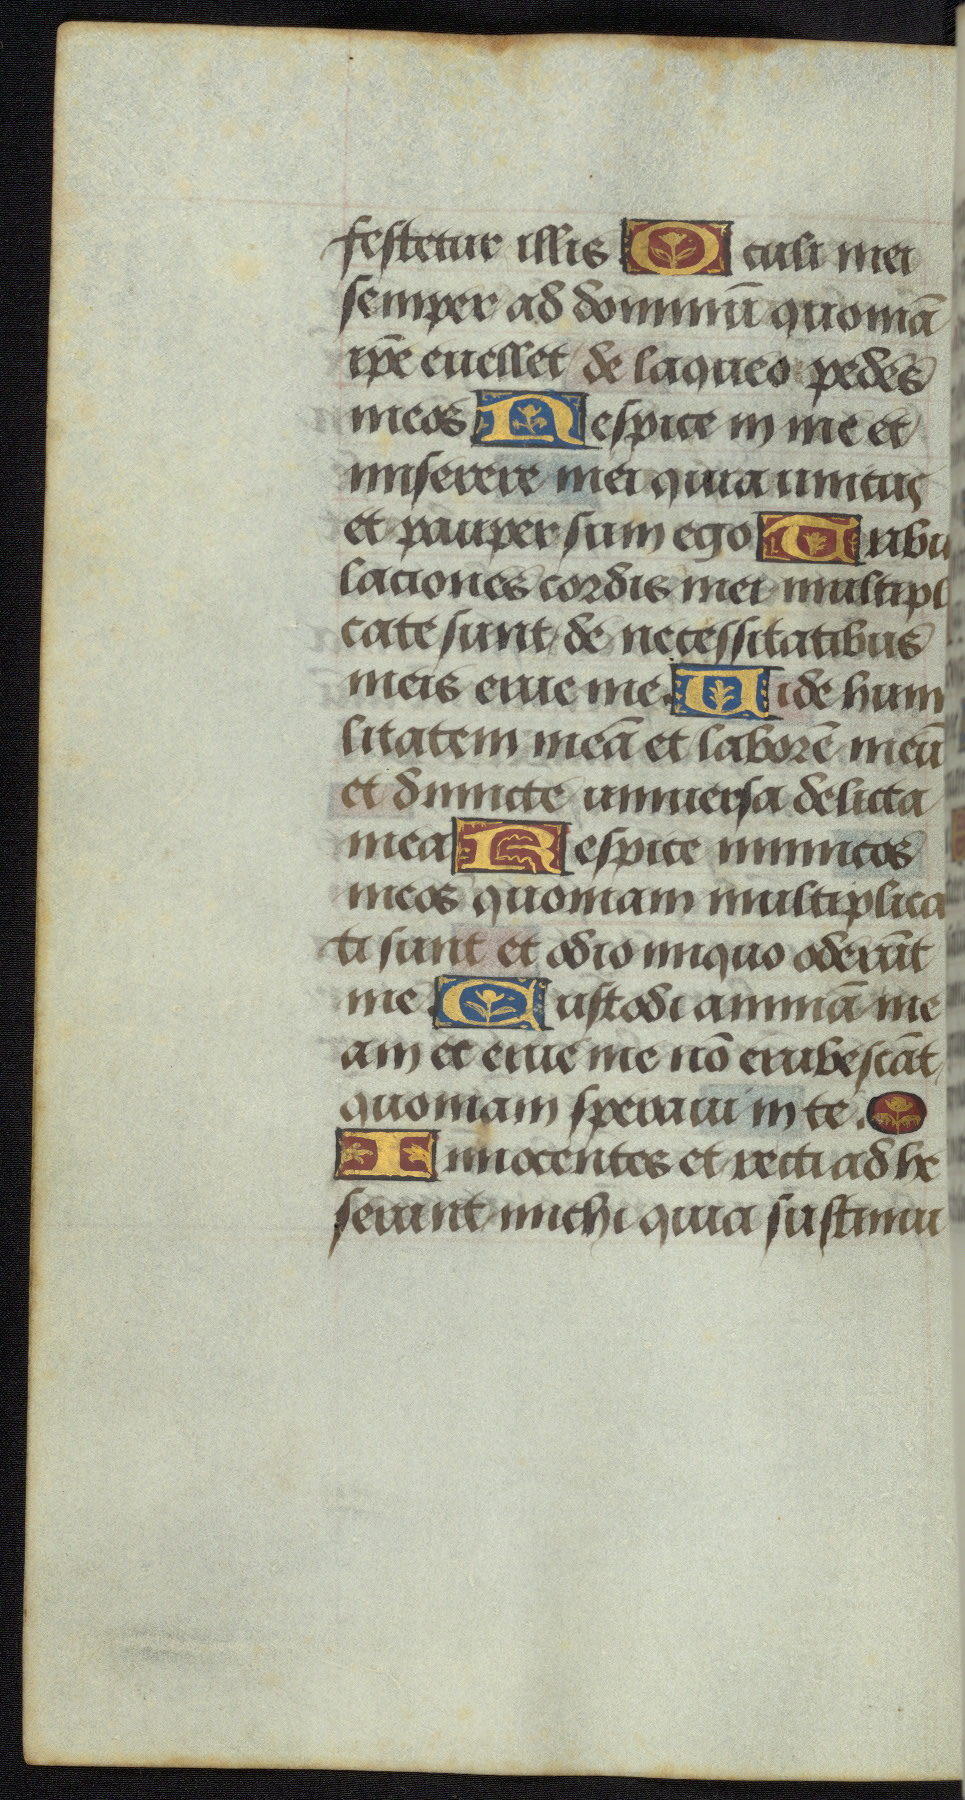 festetur illis Oculi mei
semper ad dominū quoniā
ip̄e euellet de laqueo pedes
meos Respice in me et
miserere mei quia unicus
et pauper sum ego Tribu
laciones cordis mei multipli
cate sunt de necessitatibus
meis erue me. Uide humi
litatem meā et laborē meū
et dimicte uniuersa delicta
mea Respice inimicos
meos quoniam multiplica
ti sunt et odio iniquo oderūt
me. Custodi animā me
am et erue me nō erubescāt
quoniam speraui in te.
Innocentes et recti adhe
serunt michi quia sustinui